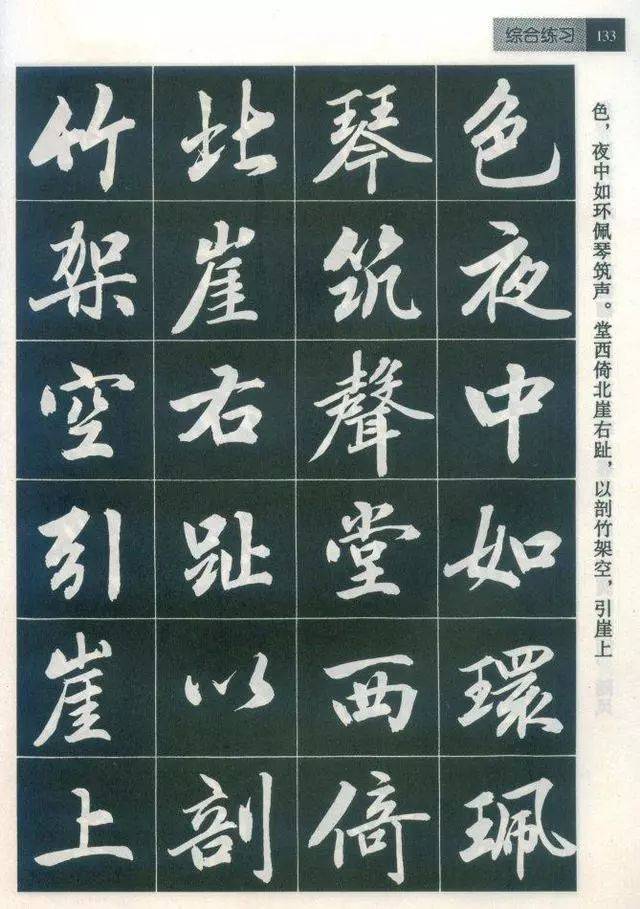 综合练习 133
色，夜中如环佩琴筑声。堂西倚北崖右趾，以剖竹架空，引崖上
色夜中如環珮
琴筑聲堂西倚
北崖右趾以剖
竹架空引崖上